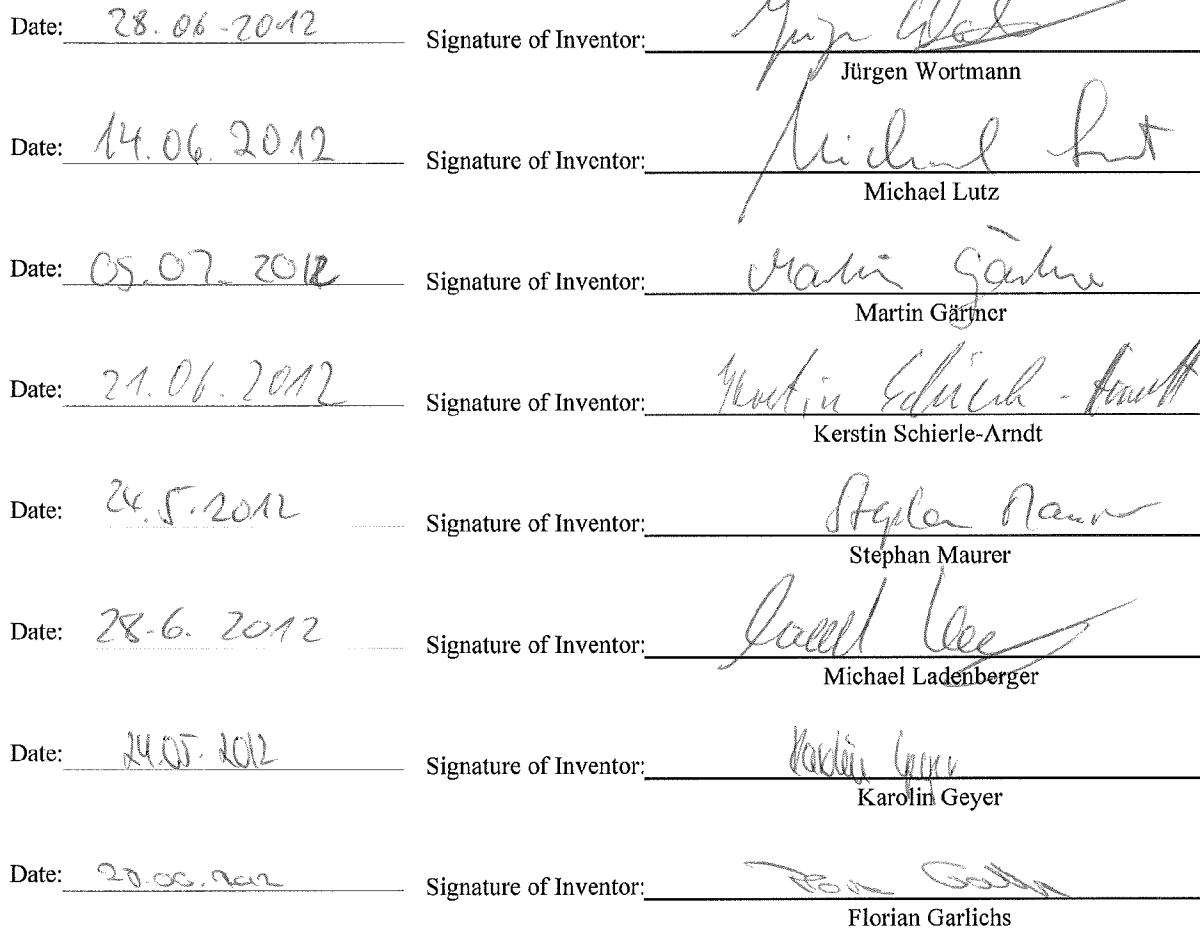 Date: 28.06-2012 Signature of Inventor:
Jürgen Wortmann
Date: 14.06.2012 Signature of Inventor: Michael Lutz
Michael Lutz
Date: 05.07.2012 Signature of Inventor: Martin Gärtner
Martin Gärtner
Date: 21.06.2012 Signature of Inventor: Kerstin Schierle-Arndt
Kerstin Schierle-Arndt
Date: 24.5.2012 Signature of Inventor: Stephan Maurer
Stephan Maurer
Date: 28.6. 2012 Signature of Inventor:
Michael Ladenberger
Date: 24.05.2012 Signature of Inventor: Karolin Geyer
Karolin Geyer
Date: Signature of Inventor:
Florian Garlichs